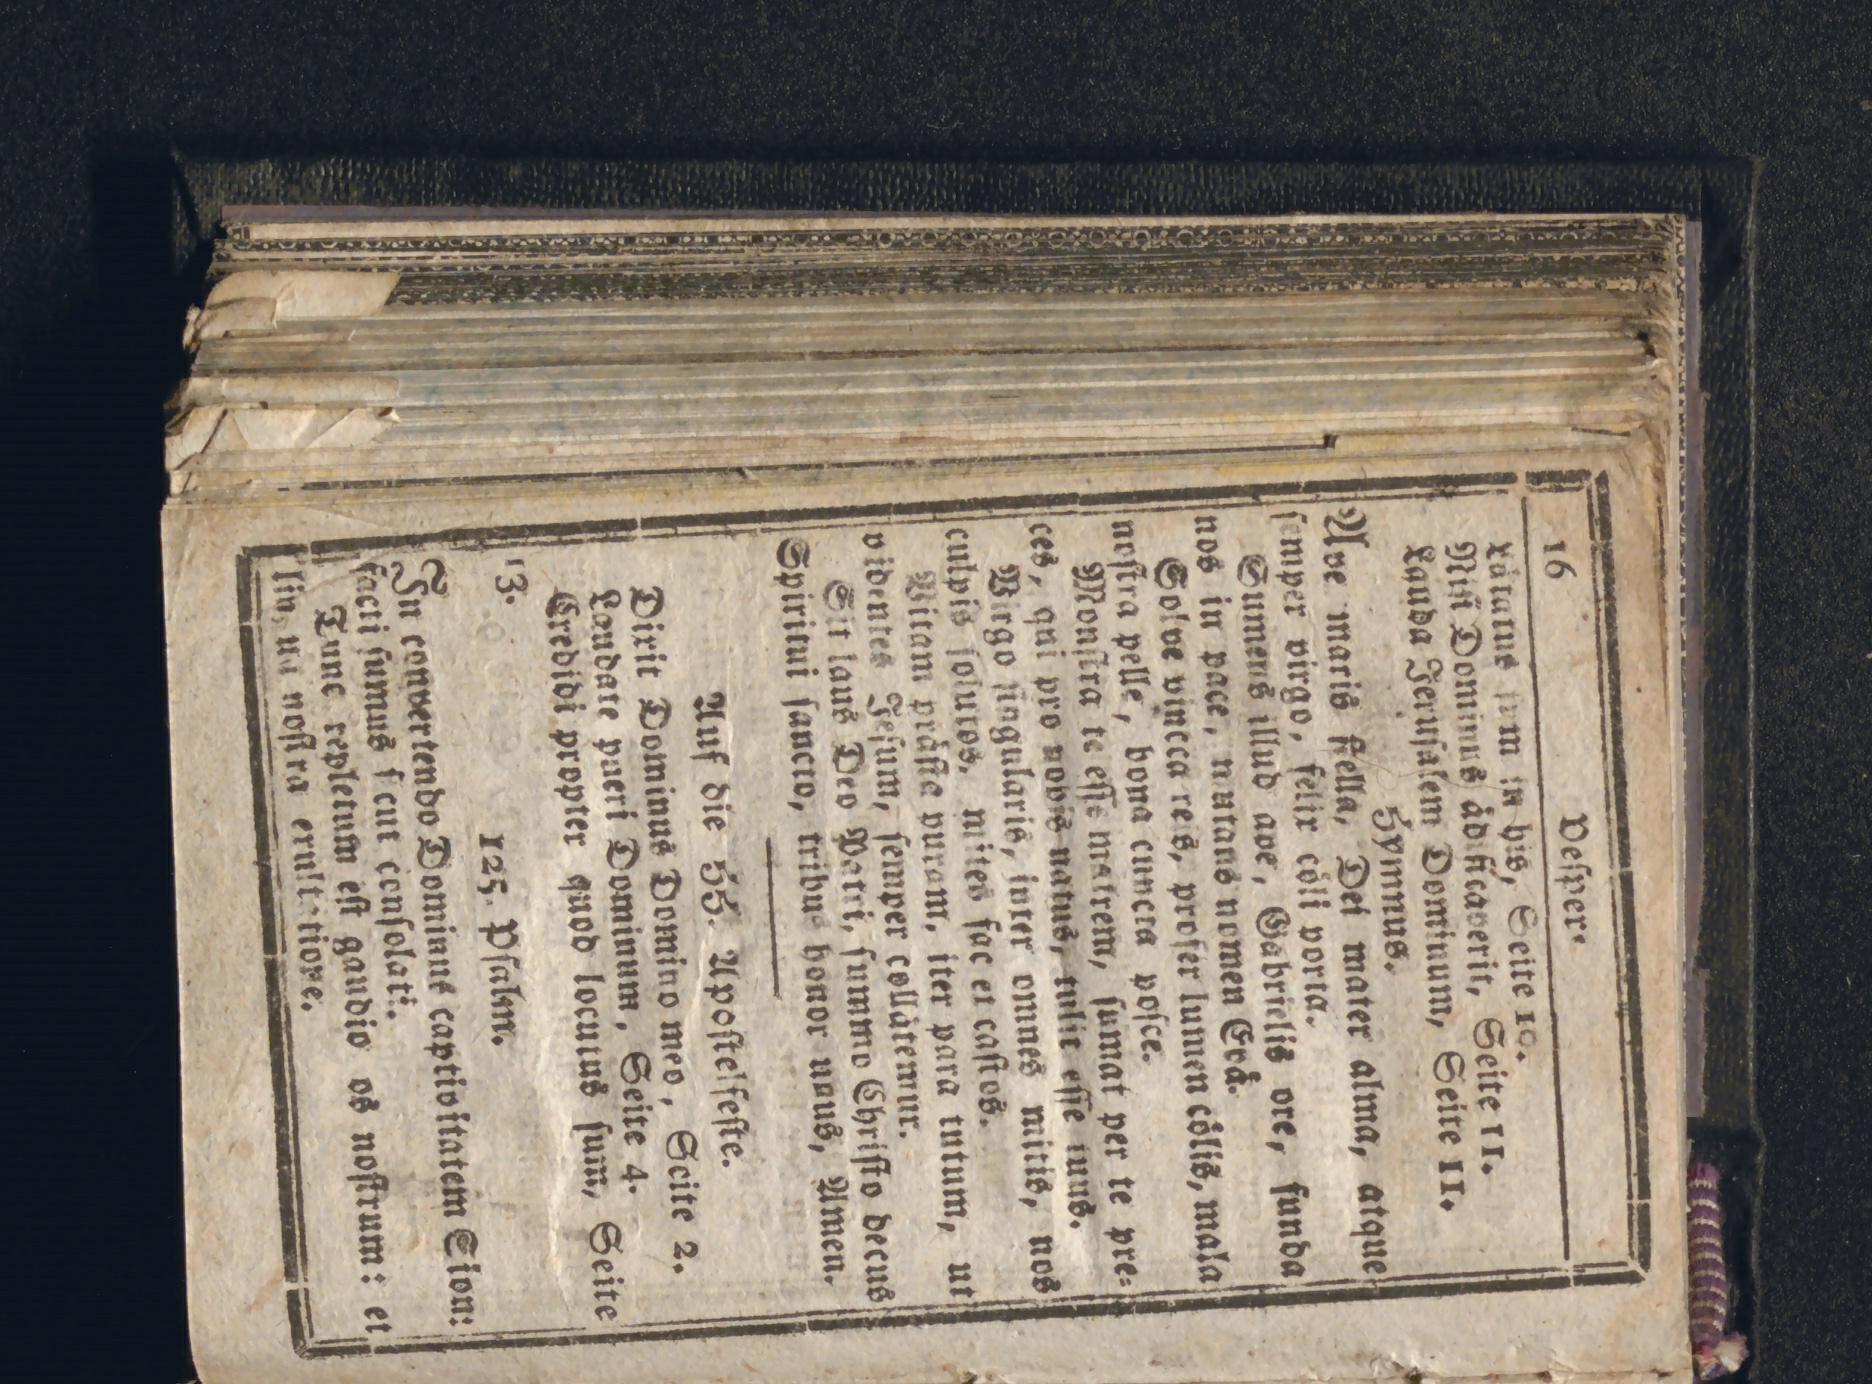 16 Veſper.
Lätatus ſum in his, Seite 10.
Niſi Dominus ädificaverit, Seite 11.
Lauda Jeruſalem Dominum, Seite 11.
Hymnus.
Ave maris ſtella, Dei mater alma, atque
ſemper virgo, felix cöli porta.
Sumens illud ave, Gabrielis ore, funda
nos in pace, mutans nomen Evä.
Solve vincca reis, profer lumen cölis, mala
noſtra pelle, bona cuncta poſce.
Monſtra te eſſe matrem, ſumat per te pre=
ces, qui pro nobis natus, tulit eſſe tuus.
Virgo ſingularis, inter omnes mitis, nos
culpis ſolutos, mites fac et caſtos.
Vitam präſta puram, iter para tutum, ut
videntes Jeſum, ſemper collätemur.
Sit laus Deo Patri, ſummo Chriſto decus
Spiritui ſancto, tribus honor unus, Amen.
Auf die HH. Apoſtelfeſte.
Dixit Dominus Domino meo, Seite 2.
Laudate pueri Dominum, Seite 4.
Credidi propter quod locutus ſum, Seite
13.
125. Pſalm.
In convertendo Dominus captivitatem Sion:
facti ſumus ſicut conſolati.
Tunc repletum eſt gaudio os noſtrum: et
lingua noſtra exultatione.